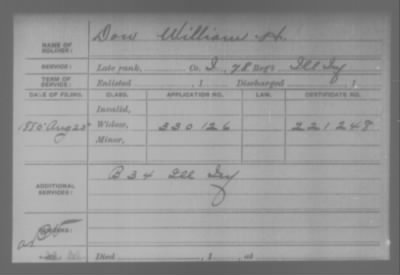 NAME OF SOLDIER: Dow William H.
SERVICE: Late rank, Co. I, 78 Reg't Ill Inf
TERM OF SERVICE: Enlisted , 1 Discharged , 1
DATE OF FILING. CLASS. APPLICATION NO. LAW. CERTIFICATE NO.
Invalid,
Aug 25 Widow, 330126 221248
Minor,
ADDITIONAL SERVICES: B 34 Ill Inf
REMARKS:
Died , 1 , at